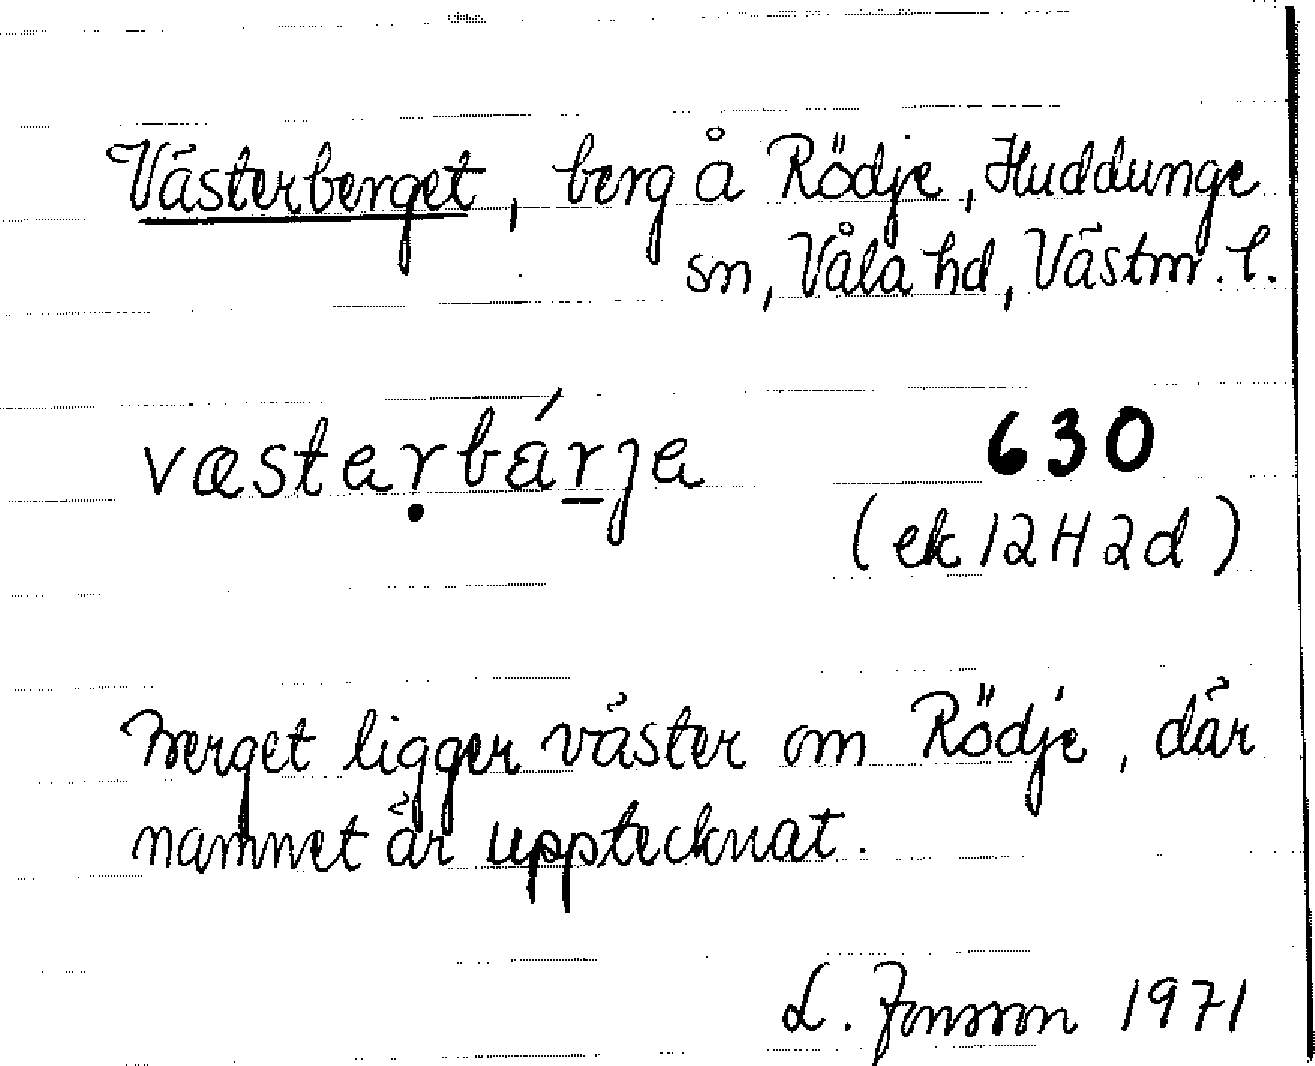 Västerberget, berg å Rödje, Huddunge
sn, Våla hd, Västm. l.
væstaṛbárja
630
(ek 12H2d)
Berget ligger väster om Rödje, där
namnet är upptecknat.
L. Jonsson 1971